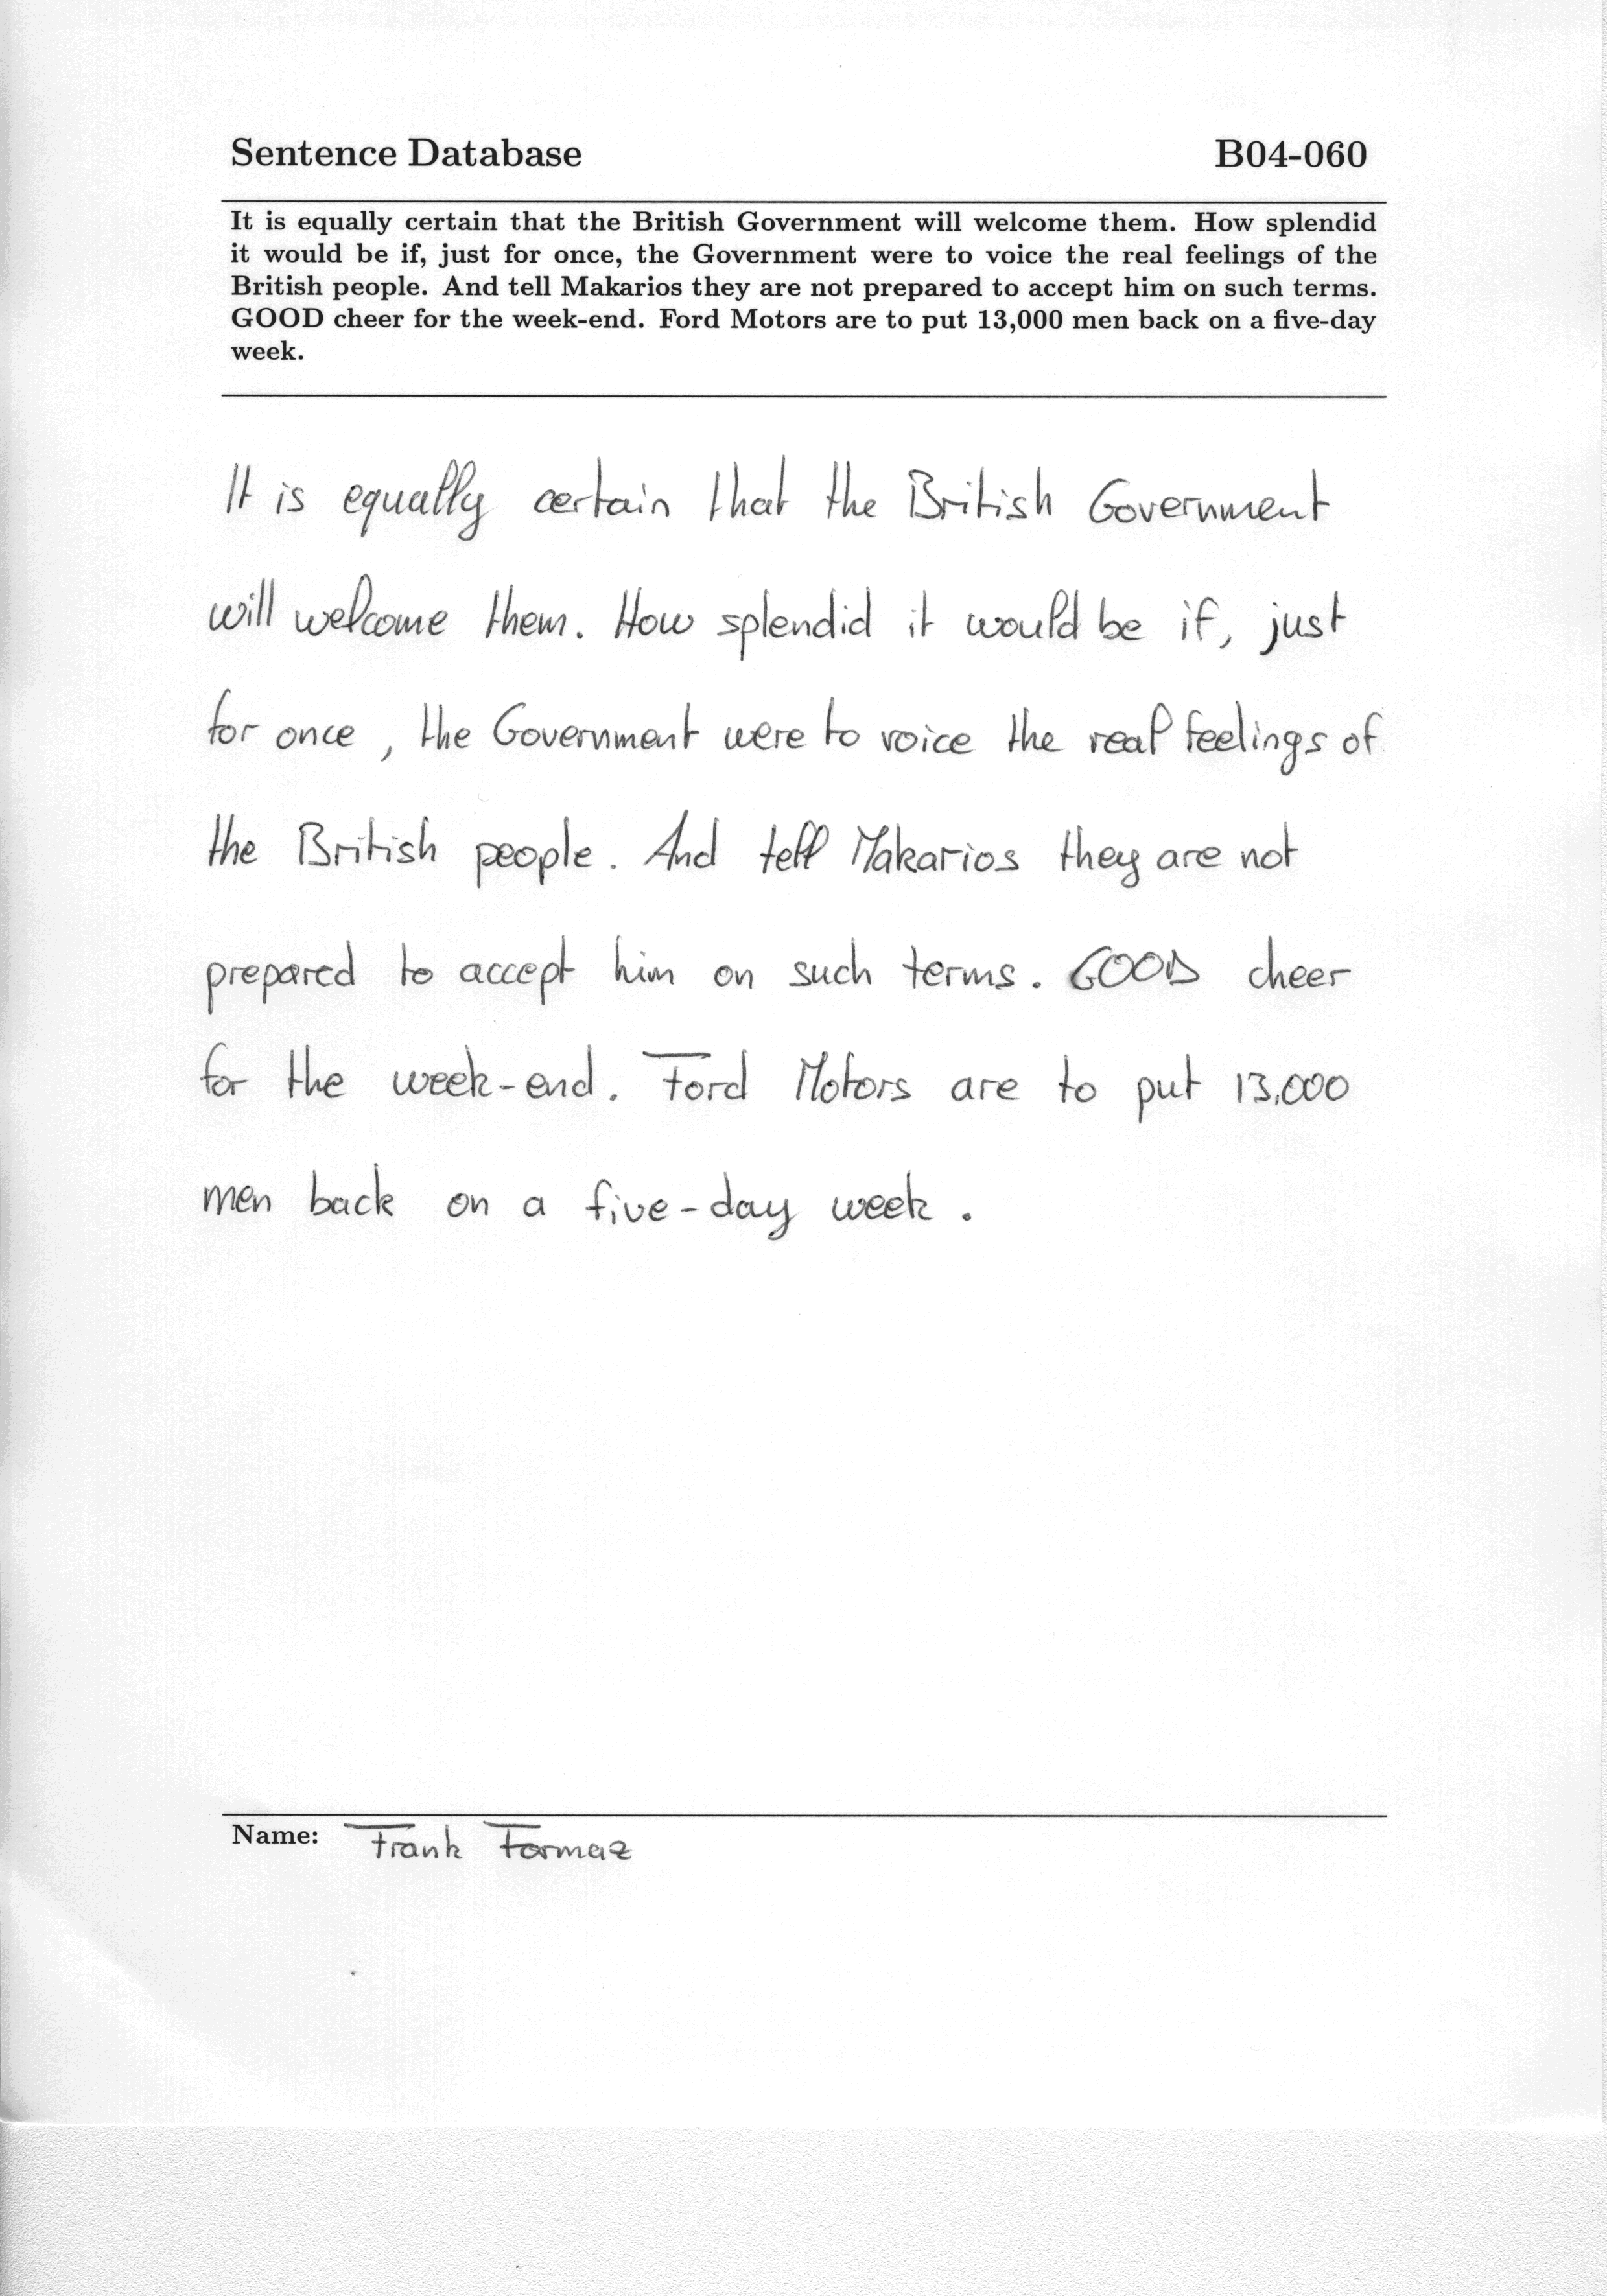 Sentence Database B04-060
It is equally certain that the British Government will welcome them. How splendid
it would be if, just for once, the Government were to voice the real feelings of the
British people. And tell Makarios they are not prepared to accept him on such terms.
GOOD cheer for the week-end. Ford Motors are to put 13,000 men back on a five-day
week.
It is equally certain that the British Government
will welcome them. How splendid it would be if, just
for once, the Government were to voice the real feelings of
the British people. And tell Makarios they are not
prepared to accept him on such terms. GOOD cheer
for the week-end. Ford Motors are to put 13,000
men back on a five-day week.
Name: Frank Formaz